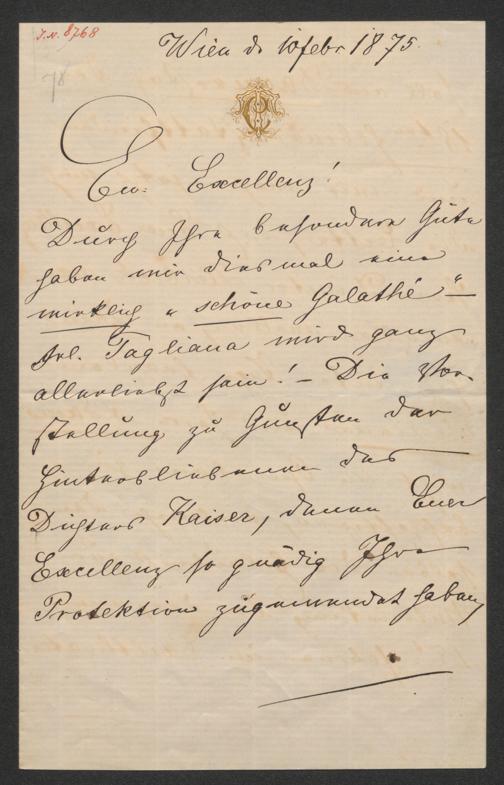 J.N. 8768
Wien d. 10 febr 1875.
78
Ew: Excellenz!
Durch Ihre besondere Güte
haben wir diesmal eine
wirklich „schöne Galathé“ –
Frl. Tagliana wird ganz
allerliebst sein! – Die Vor-
stellung zu Gunsten der
Hinterbliebenen des
Dichters Kaiser, denen Euer
Excellenz so gnädig Ihre
Protektion zugewendet haben,